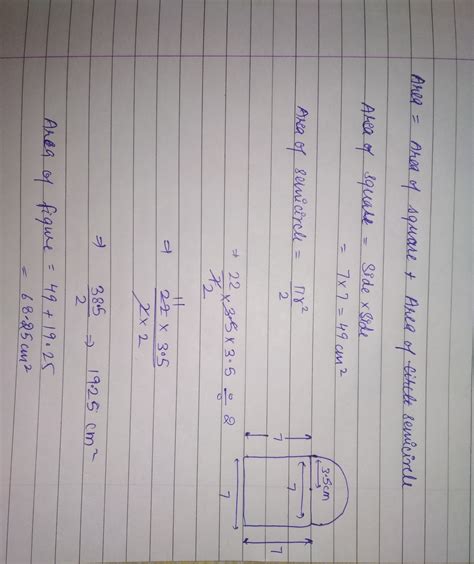 Area = Area of square + Area of circle semicircle
Area of square = Side × Side
= 7 × 7 = 49 cm²
Area of semicircle = πr²/2
⇒ 22/7 × 3.5 × 3.5 ÷ 2
⇒ 11 22 × 3.5 / 2 × 2
⇒ 38.5/2 ⇒ 19.25 cm²
Area of figure = 49 + 19.25
= 68.25 cm²
3.5cm
7
7
7
7